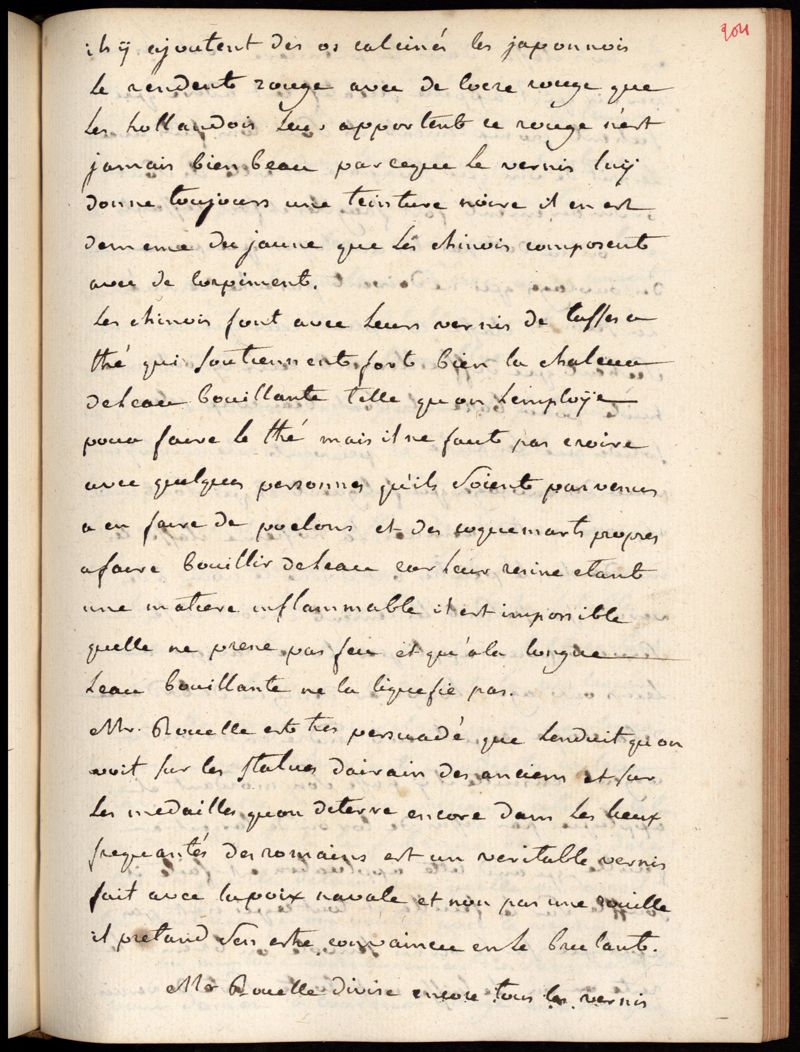 204
ils ÿ ajoutent des os calcinés les japonnois
le rendent rouge avec de locre rouge que
les hollandois leurs apportent ce rouge n'est
jamais bien beau parceque le vernis luÿ
donne toujours une teinture noire il en est
de meme du jaune que les chinois composent
avec de lorpiment.
Les chinois font avec leurs vernis de tasses a
thé qui soutiennent fort bien la chaleur
de leau bouillante telle qu'on lemploÿe
pour faire le thé mais il ne faut pas croire
avec quelques personnes qu'ils soient parvenus
a en faire de poelons et des coquemarts propres
a faire bouillir de leau car leur resine etant
une matiere inflammable il est impossible
quelle ne prene pas feu et qu'a la longue
leau bouillante ne la liquefie pas.
Mr. Rouelle est tres persuadé que lenduit qu'on
voit sur les statues dairain des anciens et sur
les medailles quon deterre encore dans les lieux
frequantés des romains est un veritable vernis
fait avec la poix navale et non pas une rouille
il pretand s'en estre convaincu en le brulant.
Mr Rouelle divise encore tous les vernis